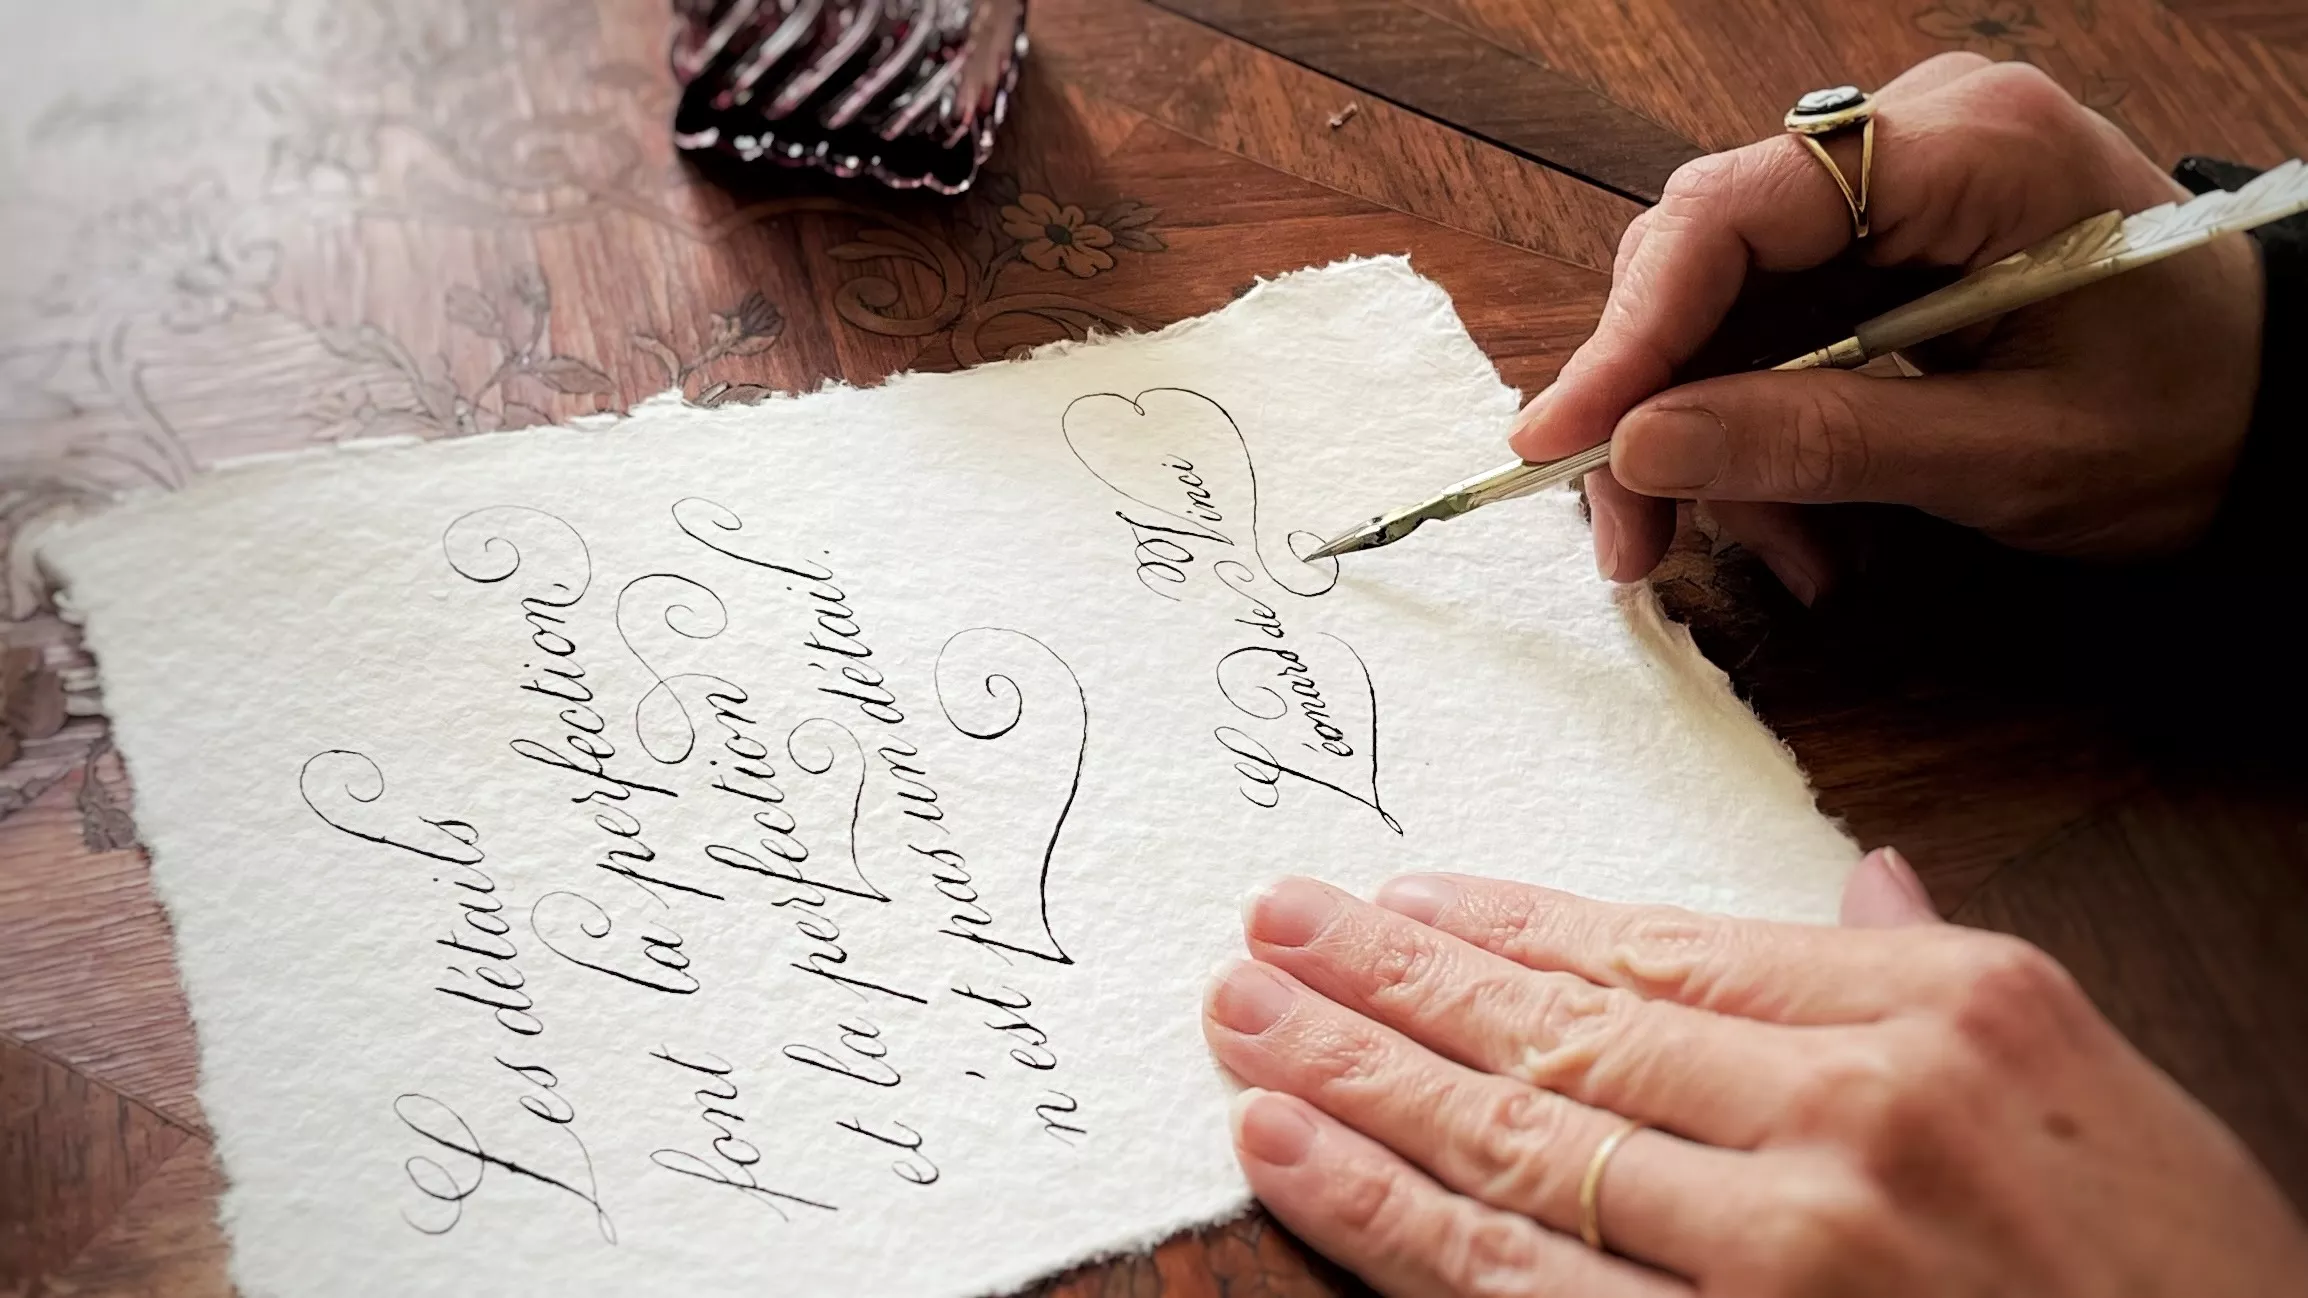 Les détails
font la perfection,
et la perfection
n'est pas un détail.
Léonard de Vinci